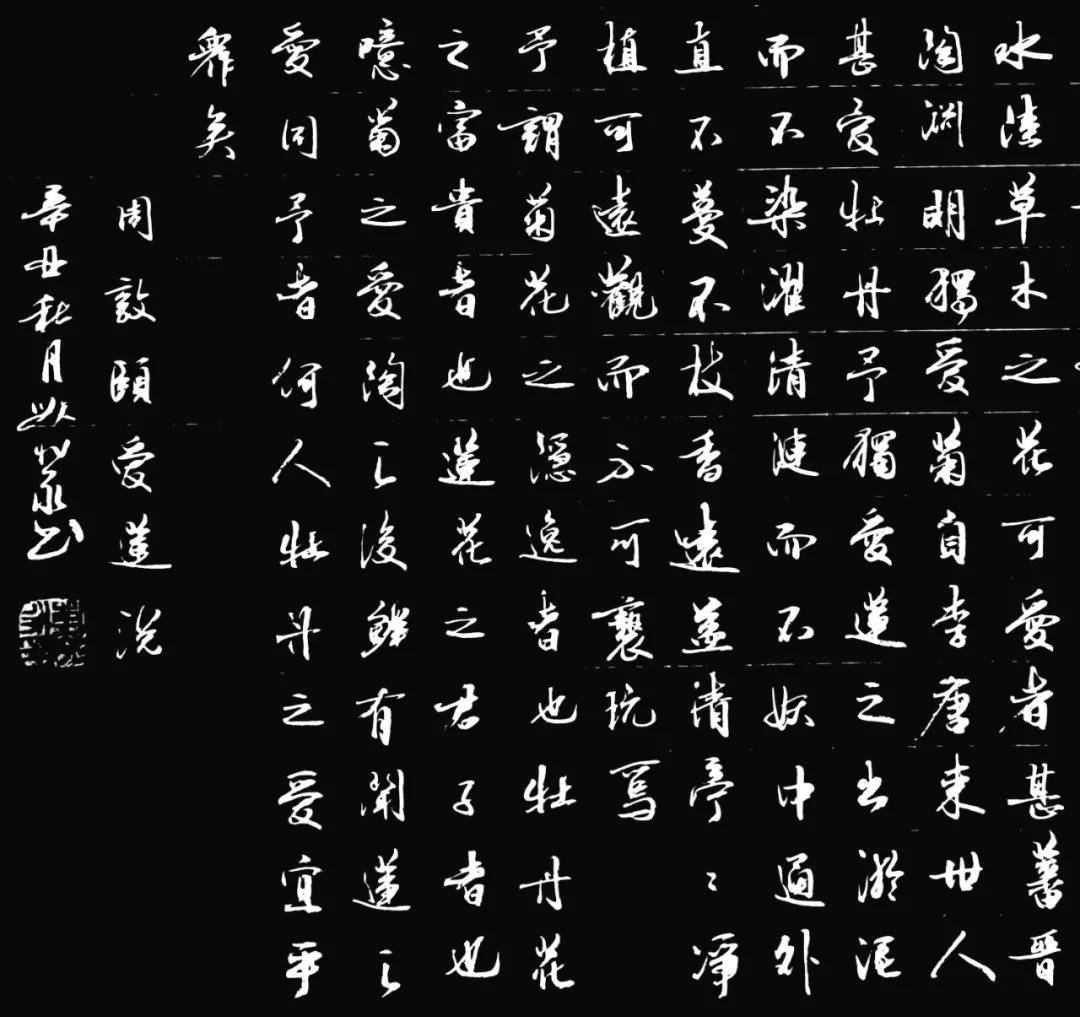 水陸草木之花可愛者甚蕃晋
陶渊明獨愛菊自李唐来世人
甚愛牡丹予獨愛蓮之出淤泥
而不染濯清漣而不妖中通外
直不蔓不枝香遠益清亭〻凈
植可遠觀而不可褻玩焉
予謂菊花之隱逸者也牡丹花
之富貴者也蓮花之君子者也
噫菊之愛陶之後鮮有聞蓮之
愛同予者何人牡丹之愛宜乎
衆矣
周敦頤愛蓮説
辛丑秋月书